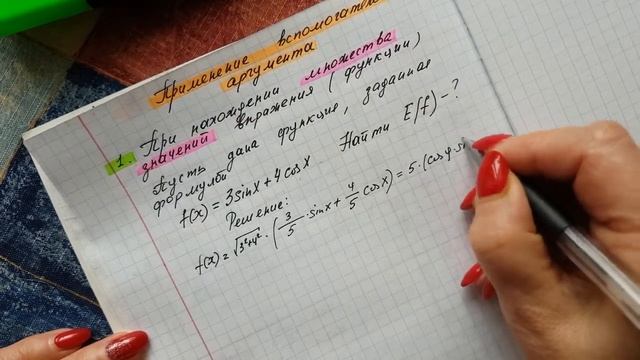 Применение вспомогате
аргумента
1. При нахождении множества
значений выражения (функции)
Пусть дана функция, заданная
формулой
f(x) = 3sinx + 4cosx Найти E(f) - ?
Решение:
f(x) = √3²+4² · (3/5 · sinx + 4/5 cosx) = 5 · (cosφ · si